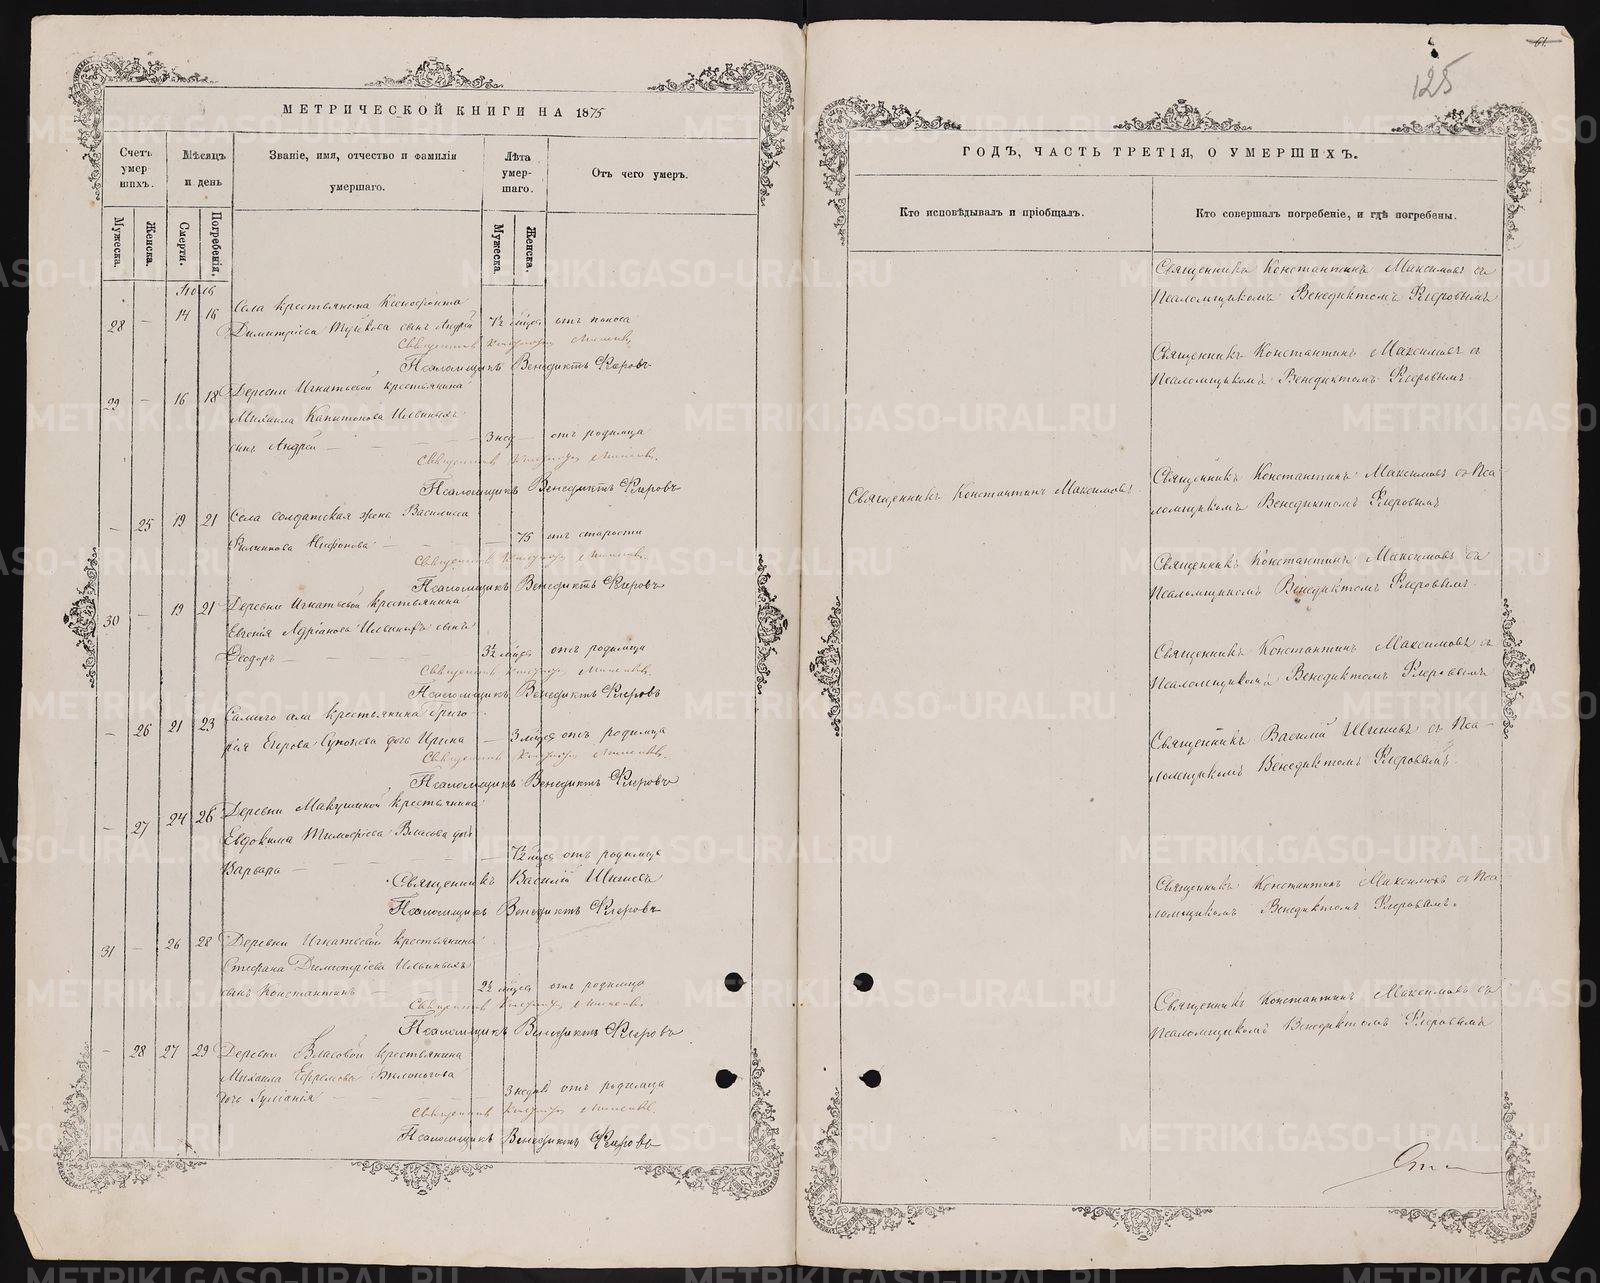 МЕТРИЧЕСКОЙ КНИГИ НА 1875
Счетъ умер-шихъ.
Мѣсяцъ и день
Званіе, имя, отчество и фамилія умершаго.
Лѣта умер-шаго.
Отъ чего умеръ.
Мужеска.
Женска.
Смерти.
Погребенія.
Мужеска.
Женска.
28 — 14 16 Села крестьянина Ксенофонта
Димитріева сынъ Андрей 7½ отъ поноса
Псаломщикъ Венедиктъ Флеровъ
29 — 16 18 Деревни Игнатьевой крестьянина
Михаила Капитонова Ильиныхъ
сынъ Андрей — 3 нед — отъ родимца
Псаломщикъ Венедиктъ Флеровъ
— 25 19 21 Села солдатская жена Василиса
Нифонова — 75 отъ старости
Псаломщикъ Венедиктъ Флеровъ
30 — 19 21 Деревни Игнатьевой крестьянина
Евгенія Адріанова Ильиныхъ сынъ
Ѳеодоръ — 3½ отъ родимца
Псаломщикъ Венедиктъ Флеровъ
— 26 21 23 Самаго села крестьянина Григо-
рія Егорова дочь Ирина — 3 отъ родимца
Псаломщикъ Венедиктъ Флеровъ
— 27 24 26 Деревни Макушиной крестьянина
Евдокима Тимоѳеева Власова дочь
Варвара — 7½ отъ родимца
Священникъ Василій Шишевъ
Псаломщикъ Венедиктъ Флеровъ
31 — 26 28 Деревни Игнатьевой крестьянина
Стефана Димитріева Ильиныхъ
сынъ Константинъ — 2½ отъ родимца
Псаломщикъ Венедиктъ Флеровъ
— 28 27 29 Деревни Власовой крестьянина
Михаила Ефремова Бѣлоногова
дочь Іуліанія — 3 недѣл отъ родимца
Псаломщикъ Венедиктъ Флеровъ
61.
125
ГОДЪ, ЧАСТЬ ТРЕТІЯ, О УМЕРШИХЪ.
Кто исповѣдывалъ и пріобщалъ.
Кто совершалъ погребеніе, и гдѣ погребены.
Священникъ Константинъ Максимовъ съ
Псаломщикомъ Венедиктомъ Флеровымъ
Священникъ Константинъ Максимовъ съ
Псаломщикомъ Венедиктомъ Флеровымъ
Священникъ Константинъ Максимовъ
Священникъ Константинъ Максимовъ съ Пса-
ломщикомъ Венедиктомъ Флеровымъ
Священникъ Константинъ Максимовъ съ
Псаломщикомъ Венедиктомъ Флеровымъ
Священникъ Константинъ Максимовъ съ
Псаломщикомъ Венедиктомъ Флеровымъ
Священникъ Василій Шишевъ съ Пса-
ломщикомъ Венедиктомъ Флеровымъ
Священникъ Константинъ Максимовъ съ Пса-
ломщикомъ Венедиктомъ Флеровымъ.
Священникъ Константинъ Максимовъ съ
Псаломщикомъ Венедиктомъ Флеровымъ
METRIKI.GASO-URAL.RU